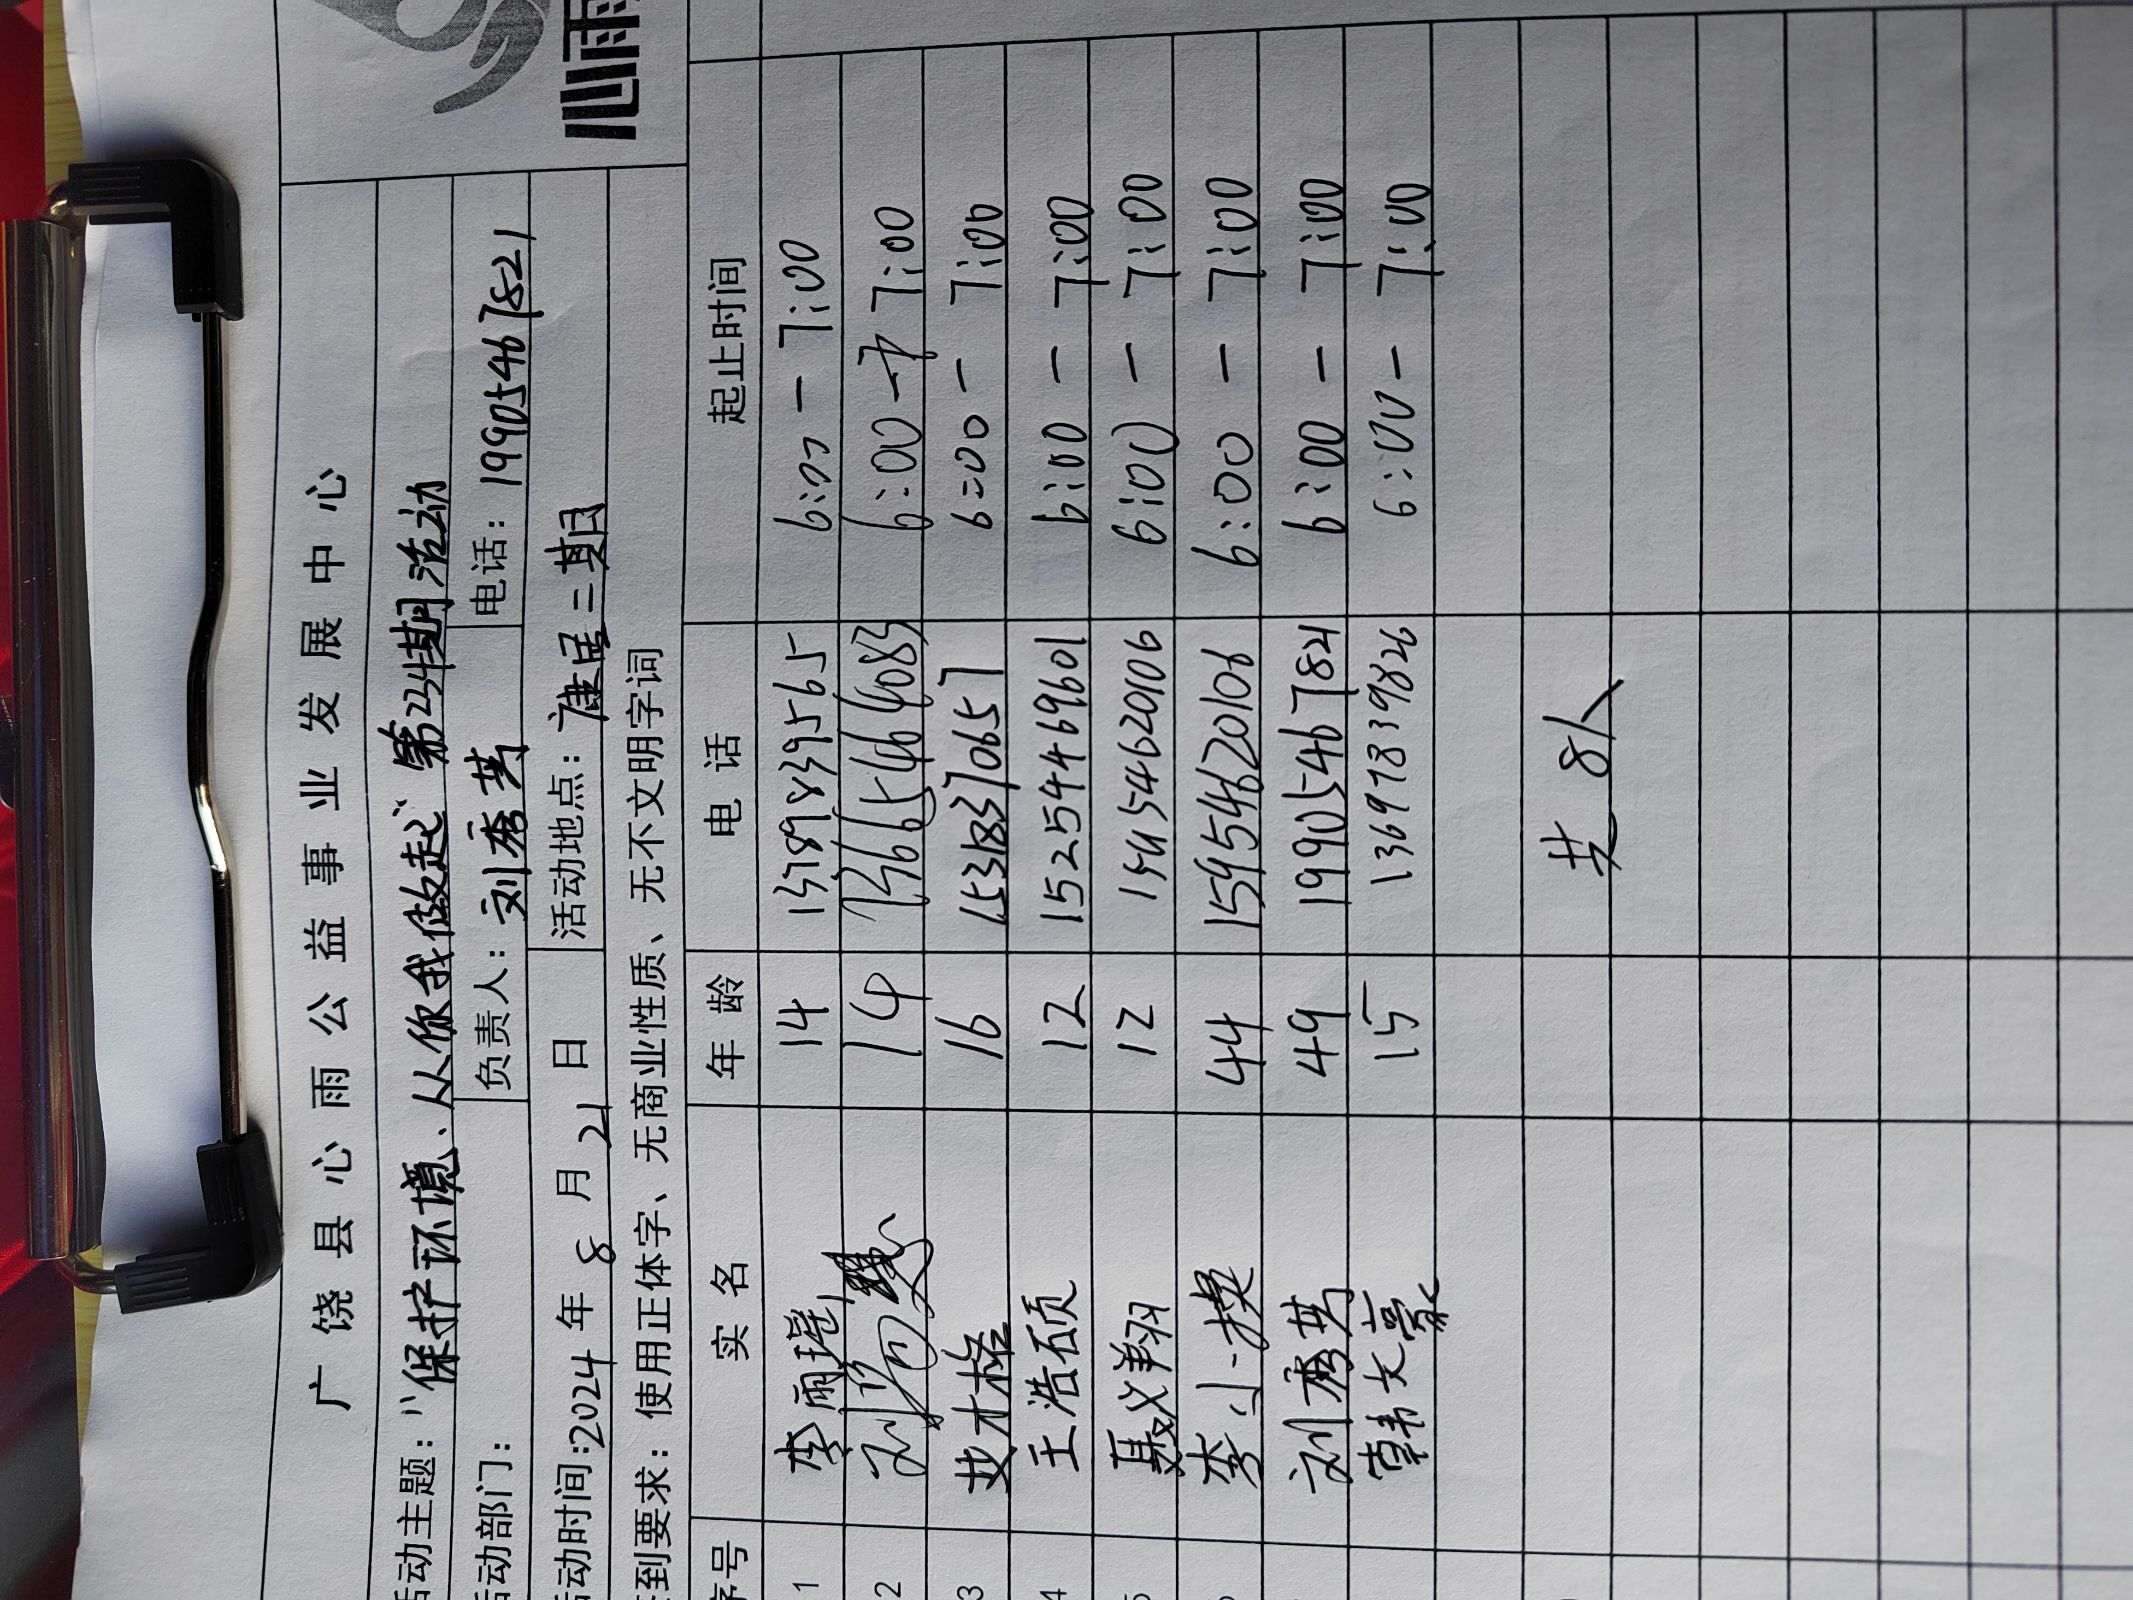 心雨
广饶县心雨公益事业发展中心
活动主题："保护环境、从你我做起"第234期活动
活动部门： 负责人：刘秀英 电话：19905467821
活动时间：2024年8月21日 活动地点：康居二期
签到要求：使用正体字、无商业性质、无不文明字词
序号 实名 年龄 电话 起止时间
1 李雨瑶 14 6:00-7:00
2 14 6:00-7:00
3 16 15383710657 6:00-7:00
4 王浩硕 12 15254469601 6:00-7:00
5 聂义翔 12 15954620106 6:00-7:00
6 李小换 44 15954620106 6:00-7:00
刘秀英 49 19905467821 6:00-7:00
韩文豪 15 13697839826 6:00-7:00
共8人